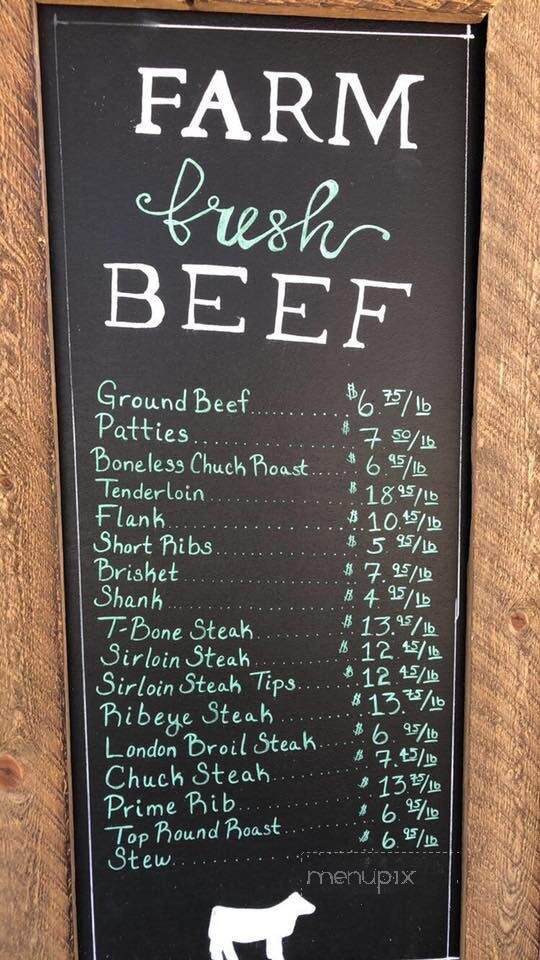 FARM
fresh
BEEF
Ground Beef.......... $6.75/lb
Patties.................... $7 50/lb
Boneless Chuck Roast..... $6 95/lb
Tenderloin................ $18 95/lb
Flank...................... $10.45/lb
Short Ribs................ $5 95/lb
Brisket.................... $7.95/lb
Shank...................... $4 95/lb
T-Bone Steak............ $13.95/lb
Sirloin Steak............ $12 45/lb
Sirloin Steak Tips...... $12 45/lb
Ribeye Steak............ $13.75/lb
London Broil Steak..... $6 95/lb
Chuck Steak............. $7.45/lb
Prime Rib................ $13 75/lb
Top Round Roast........ $6 95/lb
Stew...................... $6 95/lb
menupix